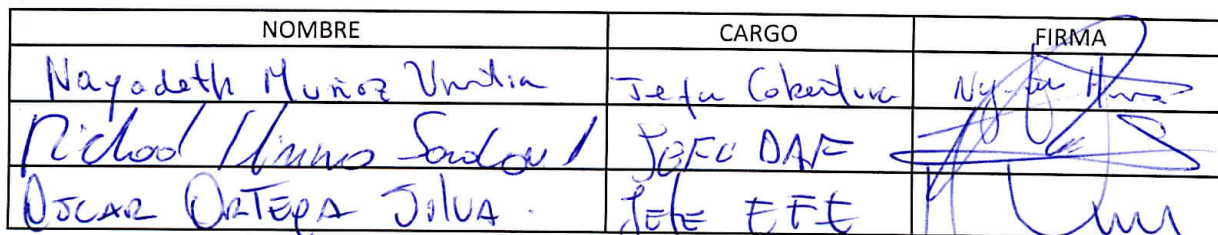 NOMBRE CARGO FIRMA
Nayadeth Muñoz Jefa Cobertura
Sandoval Jefe DAF
OSCAR ORTEGA SILVA. Jefe EFE